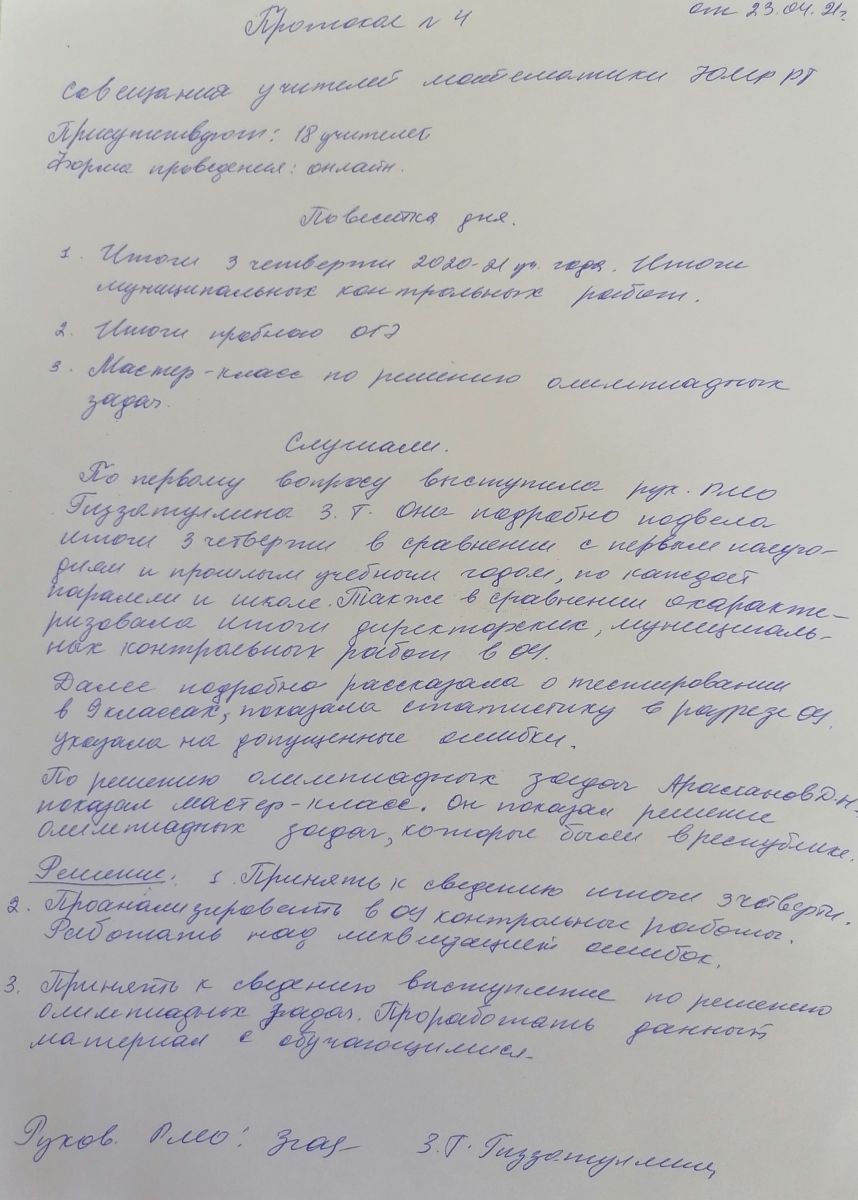 Протокол № 4
от 23.04.21г.
совещания учителей математики ЮМР РТ
Присутствуют: 18 учителей
Форма проведения: онлайн.
Повестка дня.
1. Итоги 3 четверти 2020-21 уч. года. Итоги
муниципальных контрольных работ.
2. Итоги пробного ОГЭ
3. Мастер-класс по решению олимпиадных
задач.
Слушали.
По первому вопросу выступила рук. РМО
Гиззатуллина З.Т. Она подробно подвела
итоги 3 четверти в сравнении с первым полуго-
дием и прошлым учебным годом, по каждой
паралели и школе. Также в сравнении охаракте-
ризовала итоги директорских, муниципаль-
ных контрольных работ в ОУ.
Далее подробно рассказала о тестировании
в 9 классах, показала статистику в разрезе ОУ,
указала на допущенные ошибки.
По решению олимпиадных задач Арасланов Д.Н.
показал мастер-класс. Он показал решение
олимпиадных задач, которые были в республике.
Решение: 1. Принять к сведению итоги 3 четверти.
2. Проанализировать в ОУ контрольные работы.
Работать над ликвидацией ошибок.
3. Принять к сведению выступление по решению
олимпиадных задач. Проработать данный
материал с обучающимися.
Руков. РМО: З.Т. Гиззатуллина